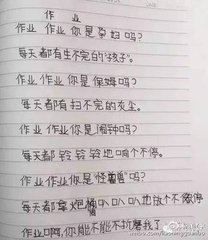 作业
作业 作业你是孕妇吗?
每天都有生不完的"孩子"。
作业 作业你是保姆吗?
每天都有扫不完的灰尘。
作业 作业你是闹钟吗?
每天都 铃 铃 铃 地响个不停。
作业 作业你是"怪兽"吗?
每天都拿炮筒叭叭叭地放个不停
作业啊,你能不能不折磨我了